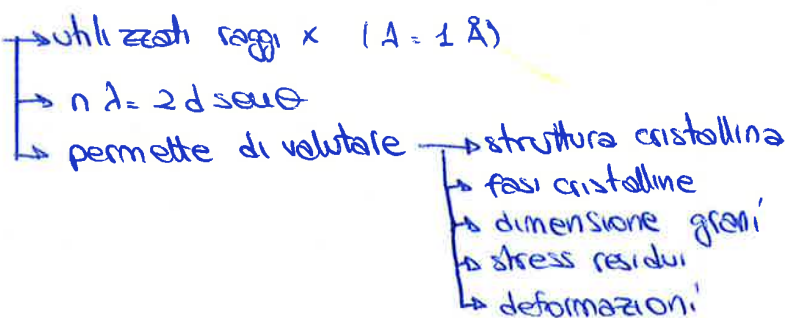 → utilizzati raggi x (λ = 1 Å)
→ n λ = 2 d senθ
→ permette di valutare → struttura cristallina
→ fasi cristalline
→ dimensione grani
→ stress residui
→ deformazioni